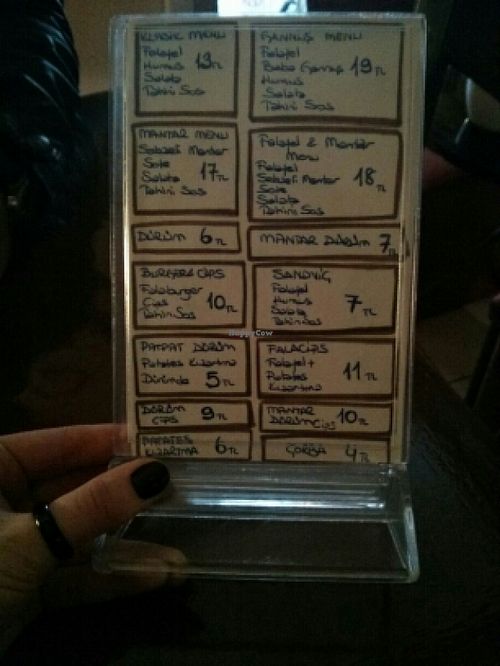 KLASİK MENU
Falafel
Humus
Salata
Tahini Sos
13 TL
GANNUŞ MENU
Falafel
Baba Gannuş
Humus
Salata
Tahini Sos
19 TL
MANTAR MENU
Sebzeli Mantar
Sote
Salata
Tahini Sos
17 TL
Falafel & Mantar
Menu
Falafel
Sebzeli Mantar
Sote
Salata
Tahini Sos
18 TL
DÜRÜM 6 TL
MANTAR DÜRÜM 7 TL
BURGER& CİPS
Falaburger
Cips
Tahin Sos
10 TL
SANDVİÇ
Falafel
Humus
Salata
Tahin Sos
7 TL
PATPAT DÜRÜM
Patates Kızartma
Dürümde
5 TL
FALACİPS
Falafel +
Patates
Kızartma
11 TL
DÜRÜM
CİPS
9 TL
MANTAR
DÜRÜM Cips
10 TL
PATATES
KIZARTMA
6 TL
ÇORBA 4 TL
HappyCow